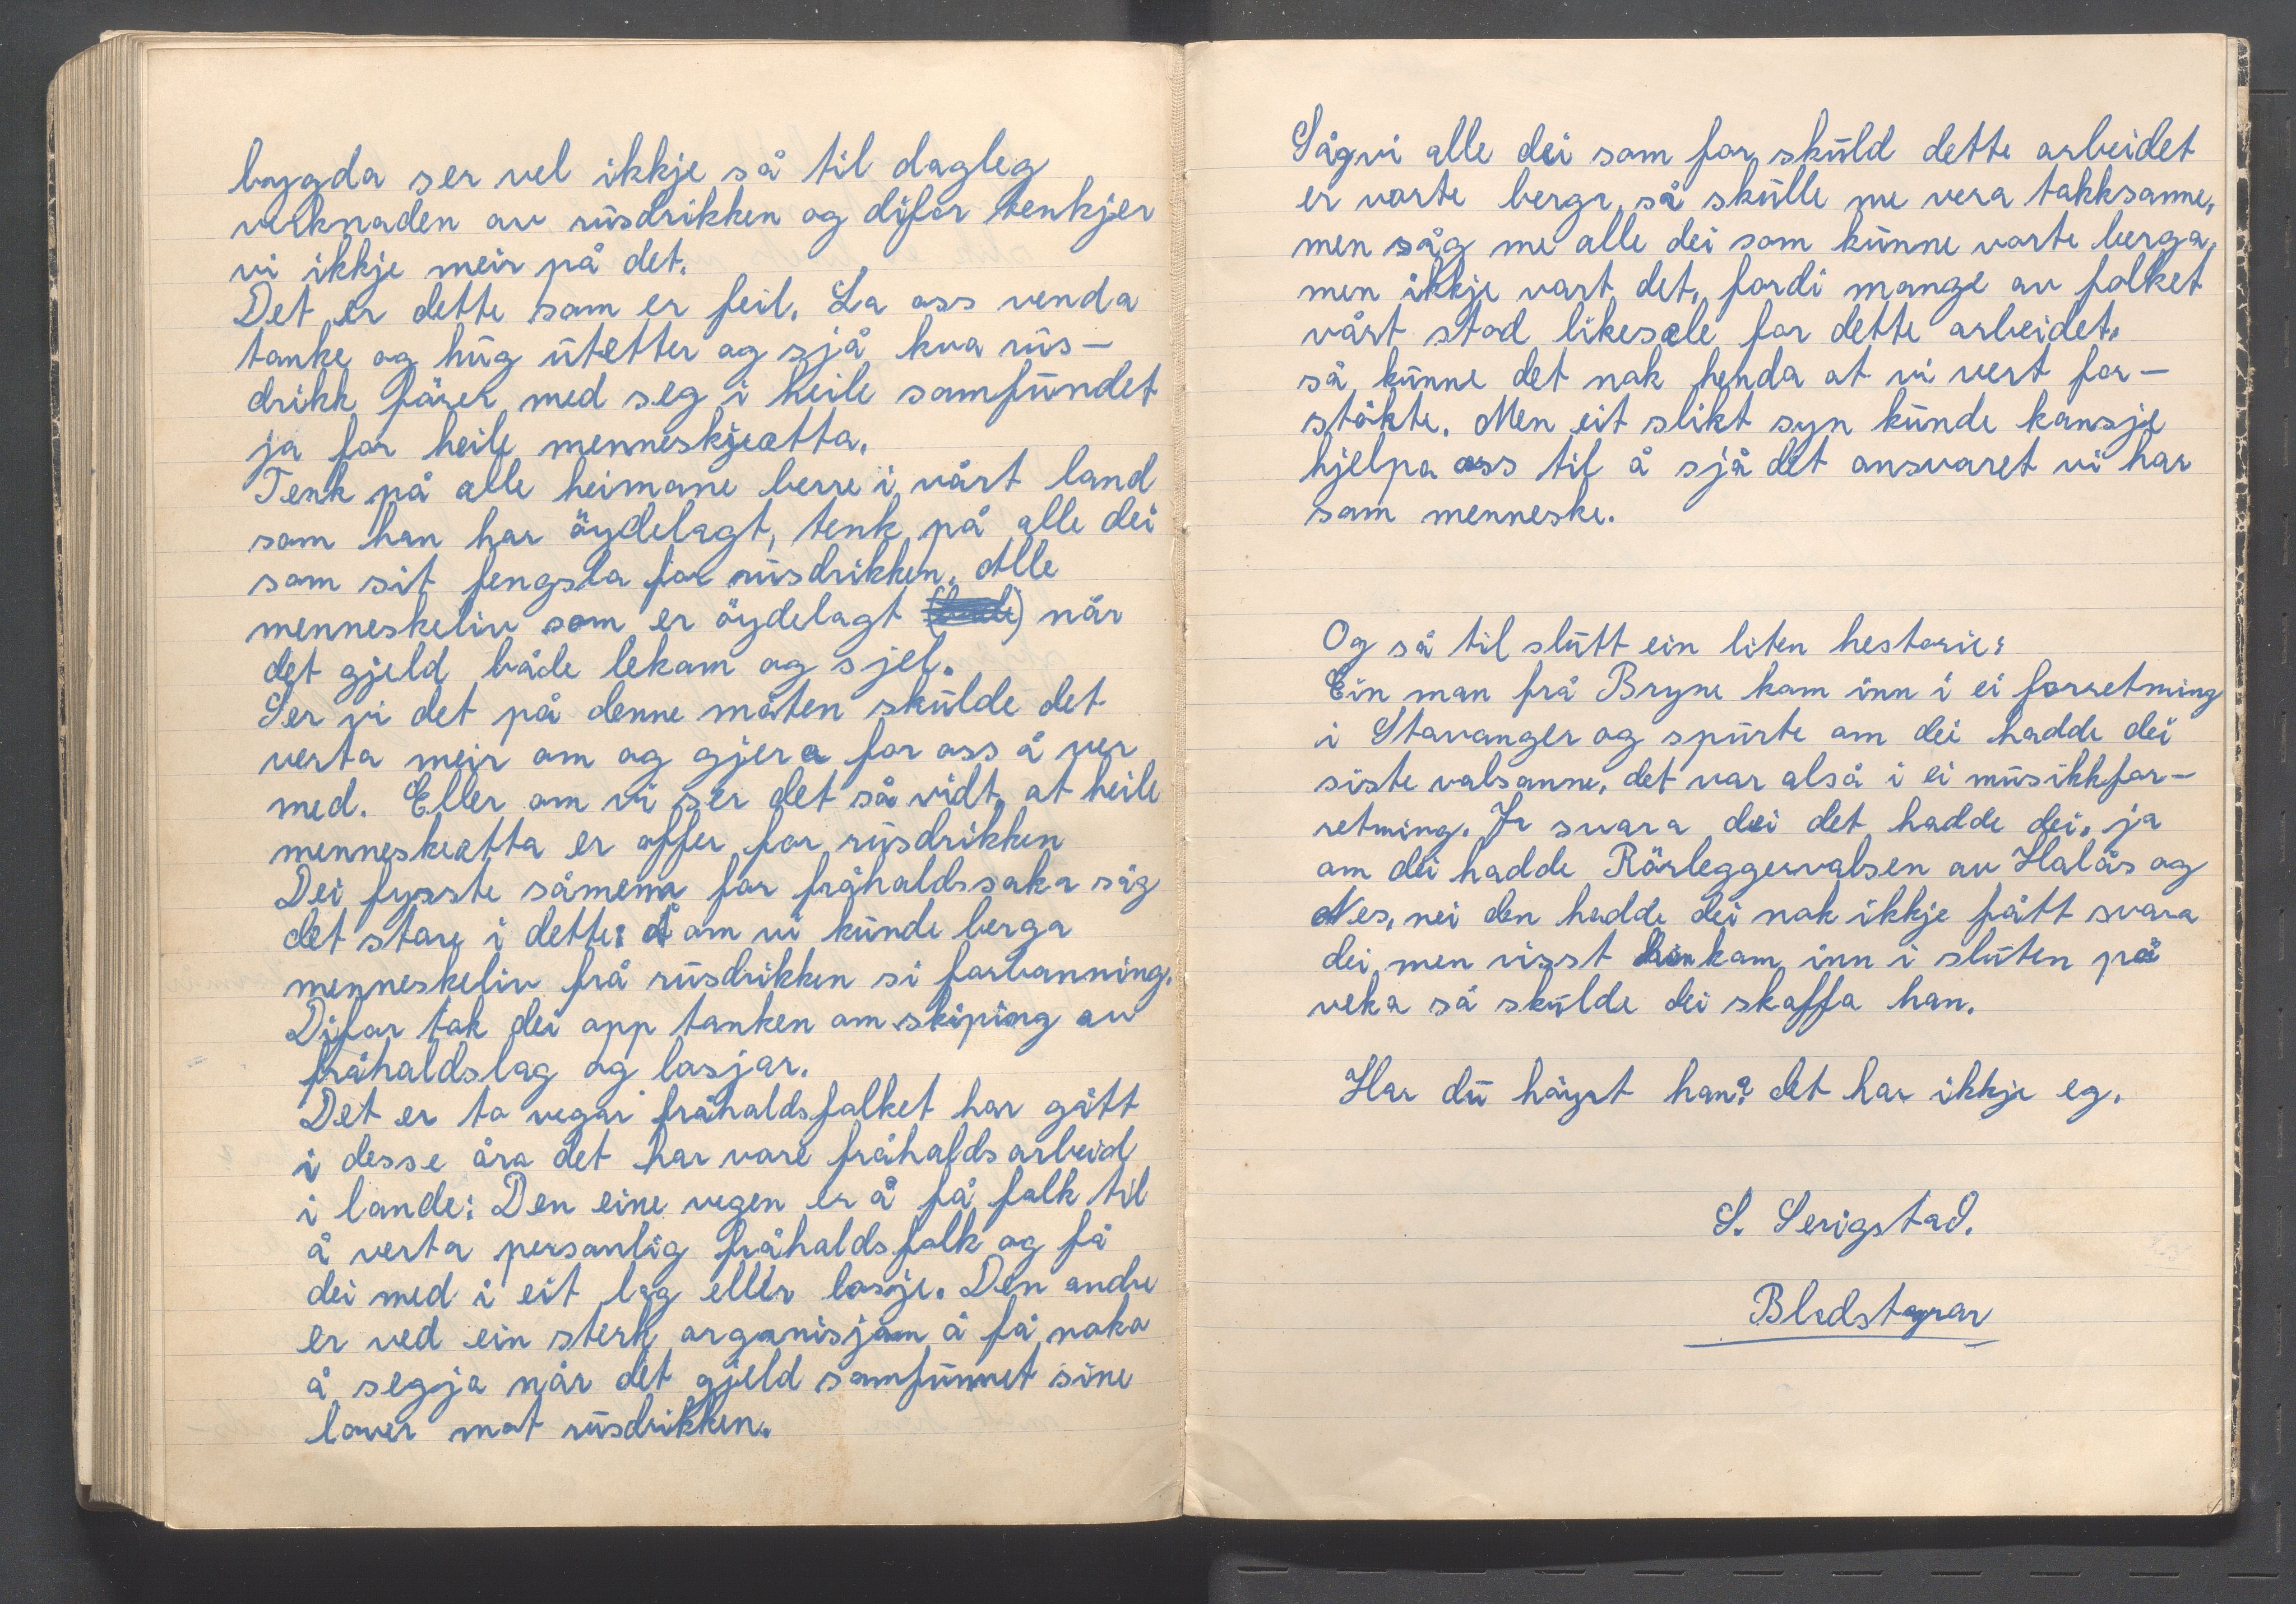 bygda ser vel ikkje så til dagleg
verknaden av rusdrikken og difor tenkjer
vi ikkje meir på det.
Det er dette som er feil. La oss venda
tanke og hug utetter og sjå kva rus-
drikk fører med seg i heile samfundet
ja for heile menneskjeætta.
Tenk på alle heimane berre i vårt land
som han har öydelagt, tenk på alle dei
som sit fengsla for rusdrikken. Alle
menneskeliv som er öydelagt når
det gjeld både lekam og sjel.
Ser vi det på denne måten skulde det
verta meir om og gjera for oss å ver
med. Eller om vi ser det så vidt at heile
menneskeætta er offer for rusdrikken
Dei fysste såmenn for fråhaldssaka såg
det store i dette: At om vi kunde berga
menneskeliv frå rusdrikken si forbanning.
Difor tok dei opp tanken om skiping av
fråhaldslag og losjar.
Det er to vegar fråhaldsfolket har gått
i desse åra det har vore fråhaldsarbeid
i lande: Den eine vegen er å få folk til
å verta personlig fråhaldsfolk og få
dei med i eit lag eller losje. Den andre
er ved ein sterk organisjon å få noko
å segja når det gjeld samfunnet sine
lover mot rusdrikken.
Såg vi alle dei som for skuld dette arbeidet
er vorte berga, så skulle me vera takksamme,
men såg me alle dei som kunne vorte berga,
men ikkje vart det, fordi mange av folket
vårt stod likesæle for dette arbeidet.
så kunne det nok henda at vi vert for-
stökte. Men eit slikt syn kunde kansje
hjelpa oss til å sjå det ansvaret vi har
som menneske.
Og så til slutt ein liten hestorie:
Ein man frå Bryne kom inn i ei forretming
i Stavanger og spurte om dei hadde dei
siste valsanne, det var alså i ei musikkfor-
retming. Ja svara dei det hadde dei, ja
om dei hadde Rörleggervalsen av Halås og
Nes, nei den hadde dei nok ikkje fått svara
dei, men visst han kom inn i sluten på
veka så skulde dei skaffa han.
Har du höyrt han? det har ikkje eg.
S. Serigstad.
Bladstyrar